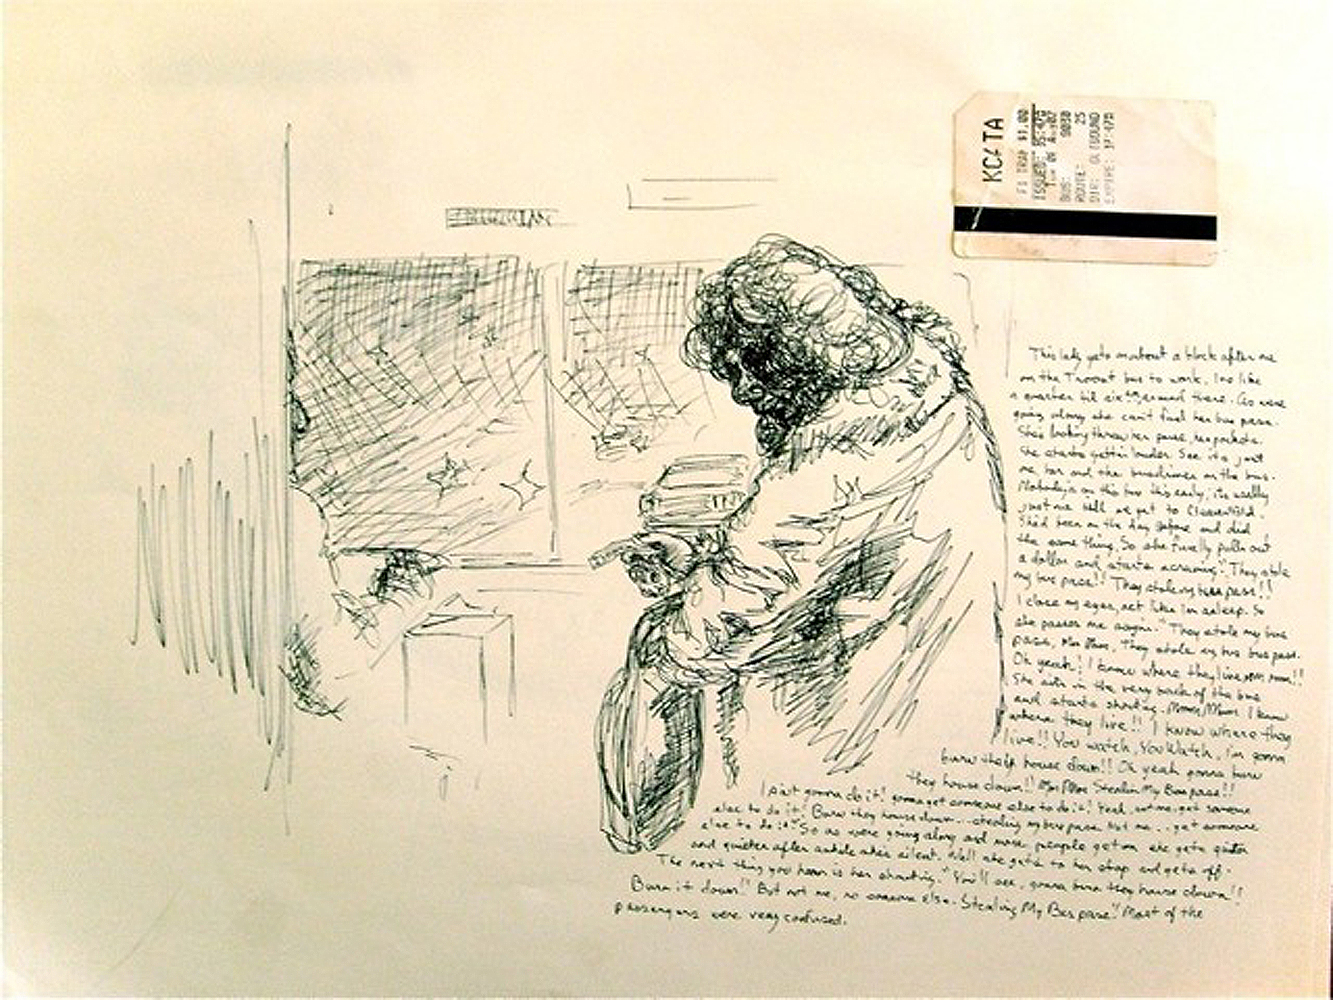 KCATA
F1 TRAP $1.00
ISSUED:
BUS: 9050
ROUTE: 25
DIR: OLEBOUND
EXPIRE:
This lady gets on about a block after me
on the Troost bus to work. Its like
a quarter til six around there. As were
going along she can't find her bus pass.
She's looking threw her purse, her pockets.
She starts gettin louder. See its just
me, her and the busdriver on the bus.
Nobody's on this bus this early, its usally
just me till we get to
She'd been on the day before and did
the same thing. So she finally pulls out
a dollar and starts screaming "They stole
my bus pass!! They stole my bus pass!!
I close my eyes, act like Im asleep. So
she passes me again. "They stole my bus
pass, Mm Mmm, They stole my bus pass.
Oh yeah! I know where they live mm mmm!!
She sits in the very back of the bus
and starts shouting. Mmm Mmm I know
where they live!! I know where they
live!! You watch, You Watch, I'm gonna
burn their house down!! Oh yeah gonna burn
they house down!! Mm Mm Stealin My Bus pass!!
I Ain't gonna do it! gonna get someone else to do it! Yeah, not me, get someone
else to do it! Burn they house down... stealing my bus pass. Not me... get someone
else to do it!" So as were going along and more people get on she gets quieter
and quieter after awhile she's silent. Well she gets to her stop and gets off.
The next thing you hear is her shouting. "You'll see, gonna burn they house down!!
Burn it down!! But not me, no someone else. Stealing My Bus pass!! Most of the
passengers were very confused.